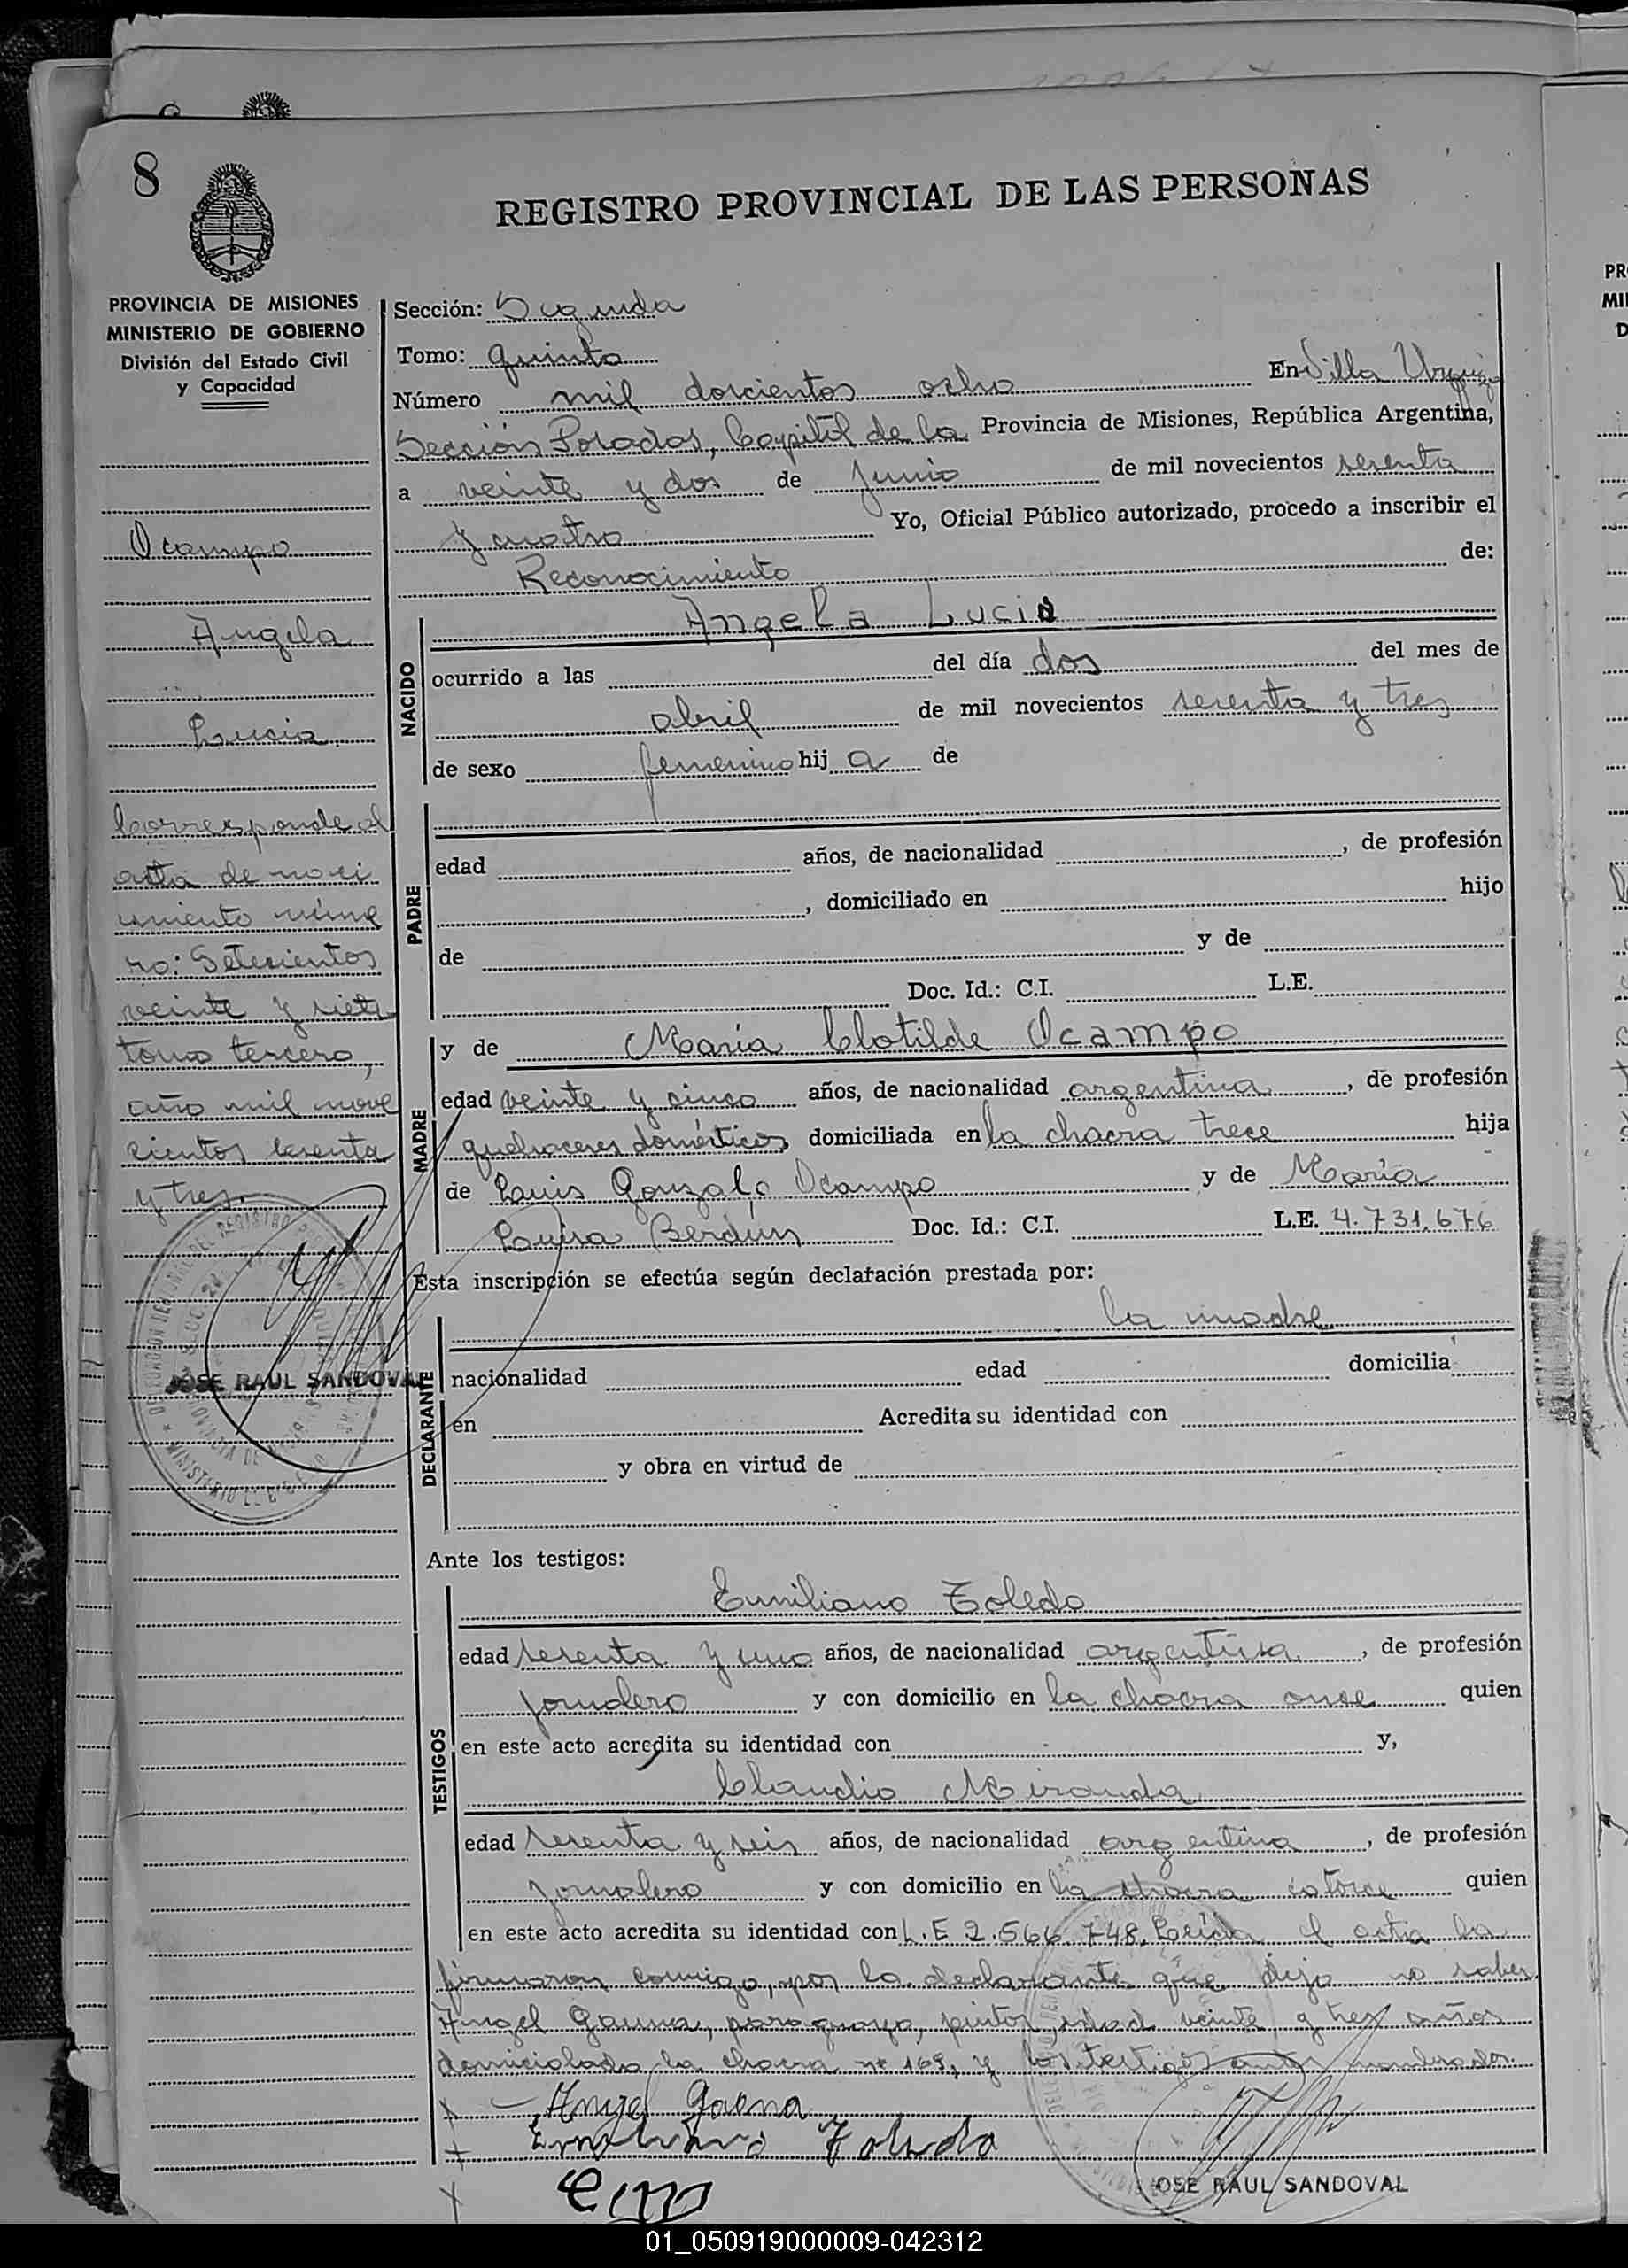 8
REGISTRO PROVINCIAL DE LAS PERSONAS
PROVINCIA DE MISIONES
MINISTERIO DE GOBIERNO
División del Estado Civil
y Capacidad
Ocampo
Angela
Lucia
Corresponde al
acta de naci
miento núme
ro: Setecientos
veinte y siete
tomo tercero,
año mil nove
cientos sesenta
y tres.
JOSE RAUL SANDOVAL
Sección: Segunda
Tomo: quinto
Número mil doscientos ocho En Villa Urquiza
Sección Posadas, Capital de la Provincia de Misiones, República Argentina,
a veinte y dos de Junio de mil novecientos sesenta
y cuatro Yo, Oficial Público autorizado, procedo a inscribir el
Reconocimiento de:
NACIDO
Angela Lucia
ocurrido a las del día dos del mes de
abril de mil novecientos sesenta y tres
de sexo femenino hij a de
PADRE
edad años, de nacionalidad , de profesión
, domiciliado en hijo
de y de
Doc. Id.: C.I. L.E.
MADRE
y de María Clotilde Ocampo
edad veinte y cinco años, de nacionalidad argentina , de profesión
quehaceres domésticos domiciliada en la chacra trece hija
de Luis Gonzalo Ocampo y de María
Luisa Berdún Doc. Id.: C.I. L.E. 4.731.676
Esta inscripción se efectúa según declaración prestada por:
DECLARANTE
la madre
nacionalidad edad domicilia
en Acredita su identidad con
y obra en virtud de
Ante los testigos:
TESTIGOS
Emiliano Toledo
edad sesenta y uno años, de nacionalidad argentina , de profesión
jornalero y con domicilio en la chacra once quien
en este acto acredita su identidad con y,
Claudio Miranda
edad sesenta y seis años, de nacionalidad argentina , de profesión
jornalero y con domicilio en la chacra catorce quien
en este acto acredita su identidad con L.E 2.566.748. Leída el acta la
firmaron conmigo, por la declarante que dijo no saber
Angel Gauna, paraguayo, pintor, edad veinte y tres años
domiciliado la chacra nº 169, y los testigos antes nombrados.
Angel Gaona
Emiliano Toledo
JOSE RAUL SANDOVAL
01_050919000009-042312